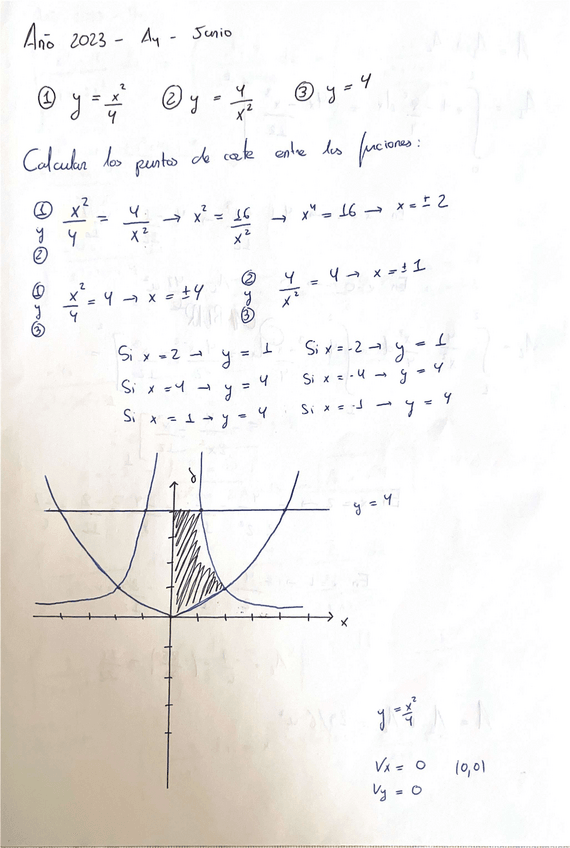 Año 2023 - A4 - Junio
① y = x²/4 ② y = 4/x² ③ y = 4
Calcular los puntos de corte entre las funciones:
① y ② x²/4 = 4/x² → x² = 16/x² → x⁴ = 16 → x = ± 2
① y ③ x²/4 = 4 → x = ±4 ② y ③ 4/x² = 4 → x = ±1
Si x = 2 → y = 1 Si x = -2 → y = 1
Si x = 4 → y = 4 Si x = -4 → y = 4
Si x = 1 → y = 4 Si x = -1 → y = 4
y
y = 4
x
y = x²/4
Vx = 0 (0,0)
Vy = 0